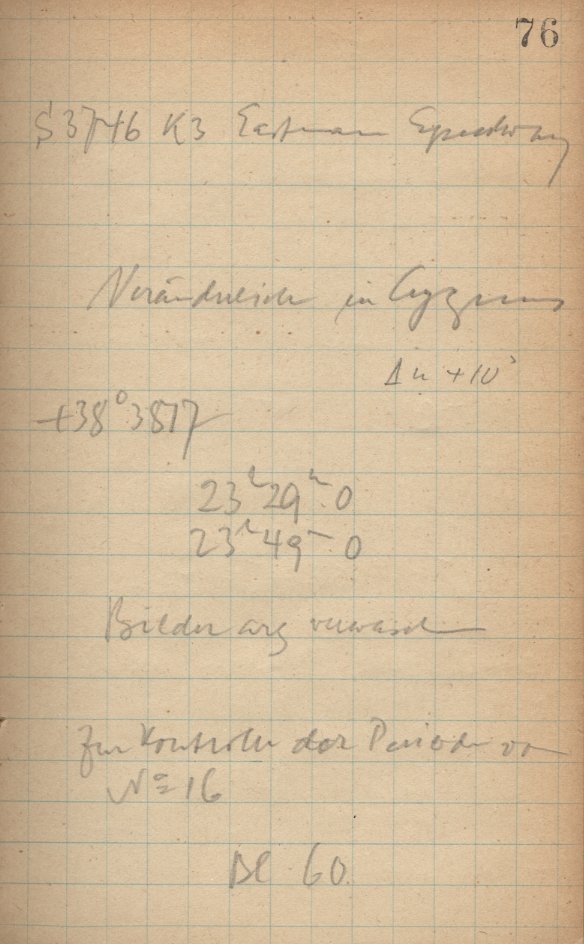 76
S 3746 K3 Eastman Speedway
Veränderliche in Cygnus
Δu +10ˢ
+38° 3817
23ʰ29ᵐ.0
23ʰ49ᵐ.0
Bilder arg verwaschen
Zur Kontrolle der Periode von
Nº 16
Bl 60